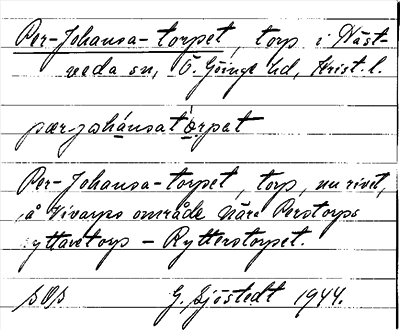 Per-Johansa-torpet, torp i Näst-
veda sn, Ö. Göinge hd, Krist. l.
pær-johánsatòrpet
Per-Johansa-torpet, torp, nu rivet,
å Vivarps område nära Perstorps
ryttaretorp - Ryttarstorpet.
SOS G. Sjöstedt 1944.